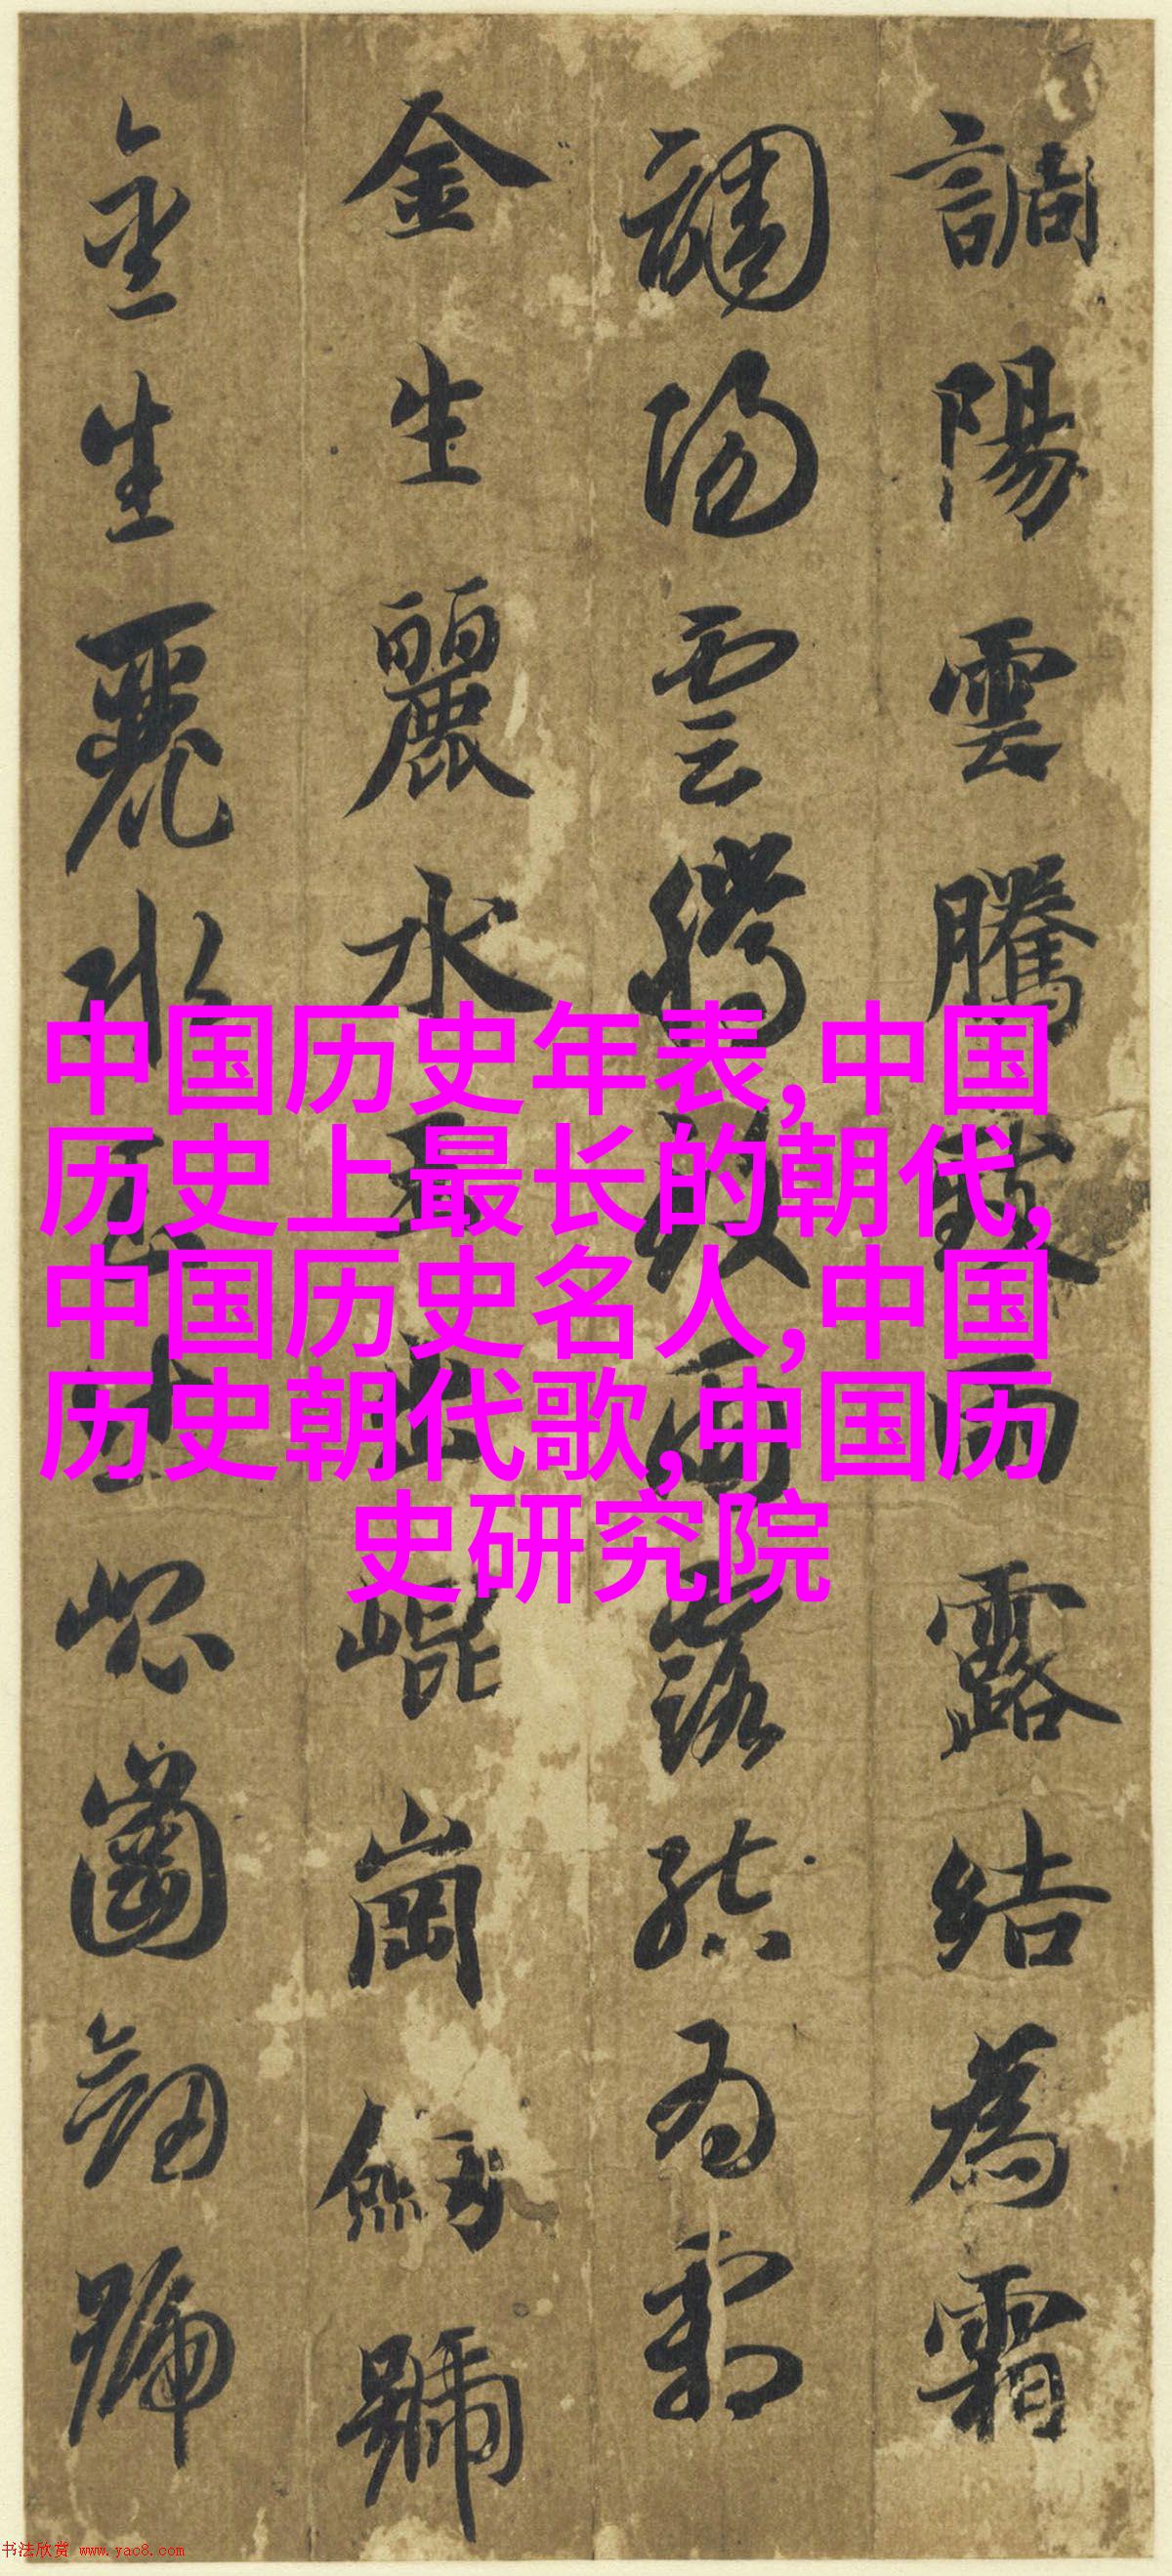 調陽雲騰致雨露結為霜
調陽雲騰致雨露結為霜
金生麗水玉出崐崗劒號
金生麗水玉出崐崗劒號
中国历史年表,中国
历史上最长的朝代,
中国历史名人,中国
历史朝代歌,中国历
史研究院
书法欣赏 www.yac8.com